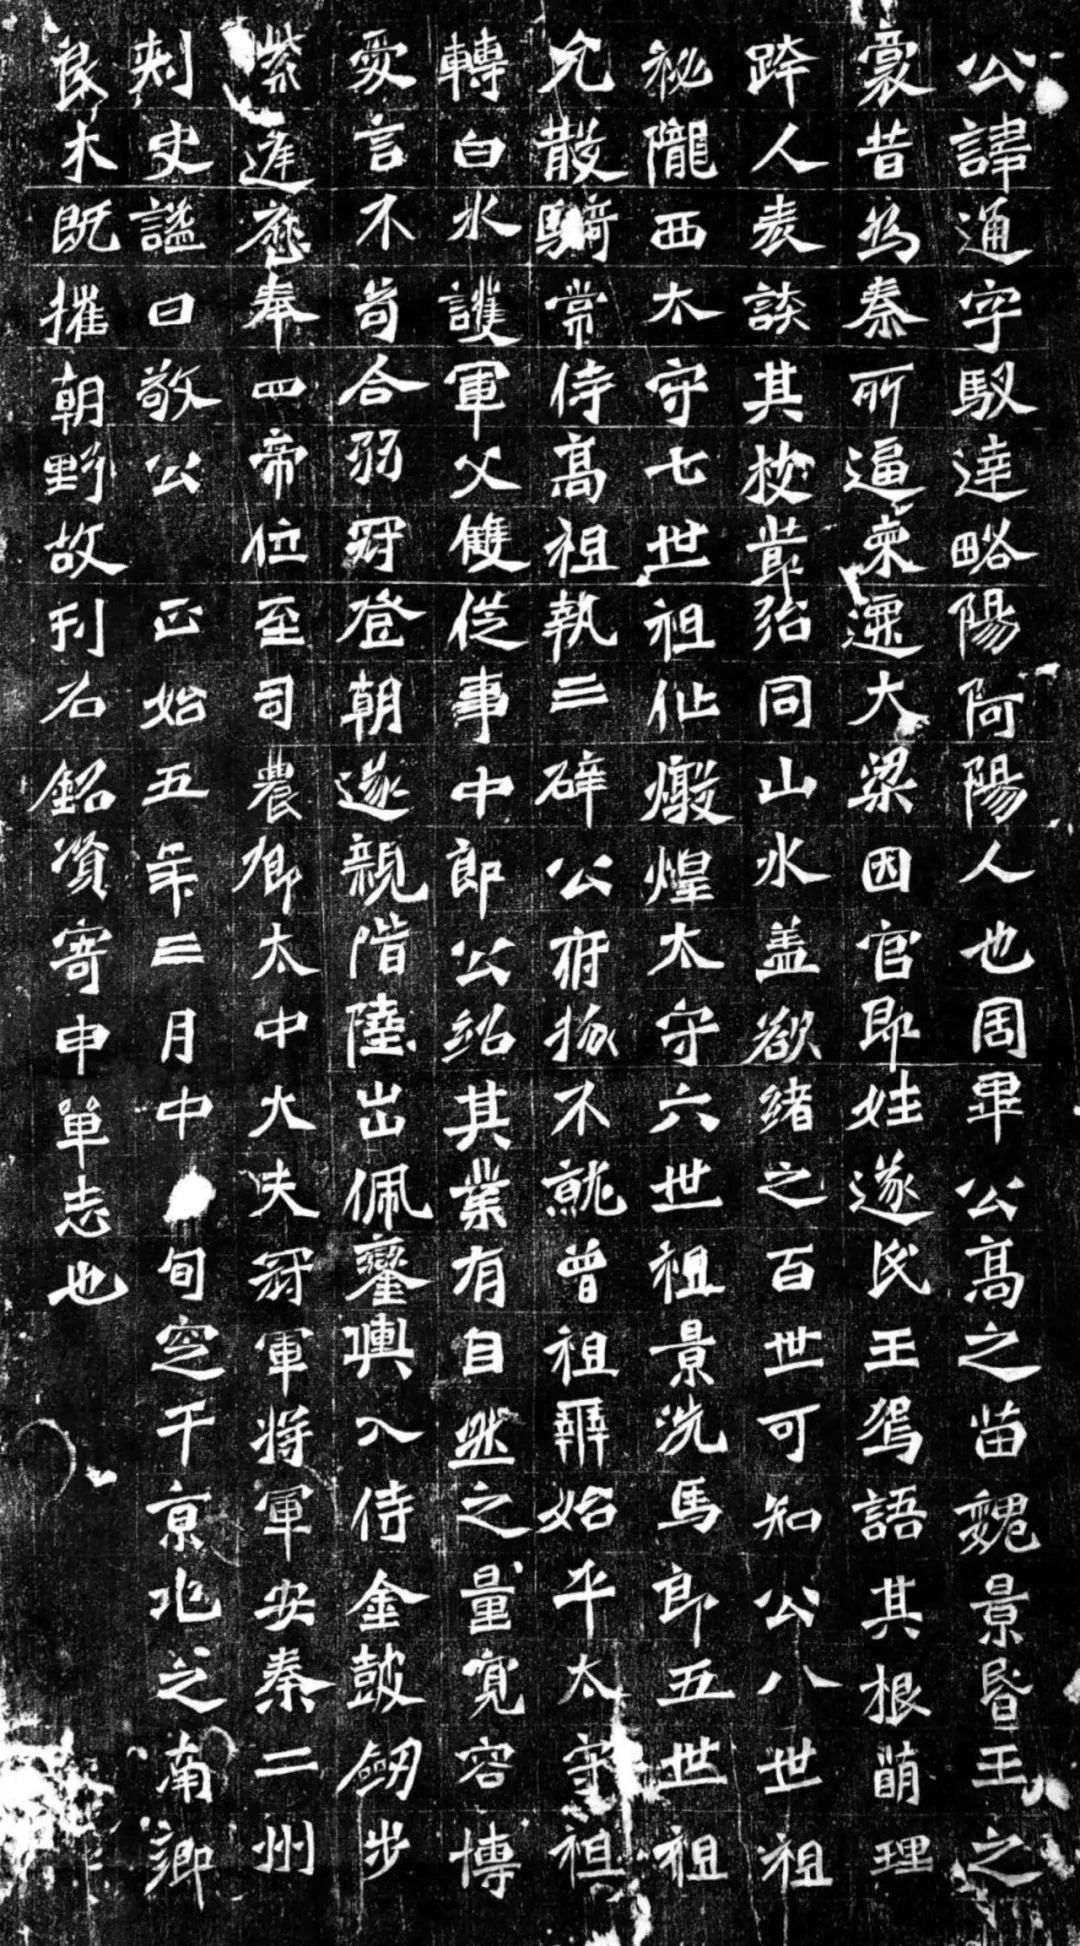 公諱通字馭達略陽阿陽人也周畢公高之苗魏景昬王之
豪昔為秦所逼東遷大梁因官即姓遂氏王焉語其根萌理
跨人表談其枝節殆同山水盖欲緒之百世可知公八世祖
祕隴西太守七世祖仳燉煌太守六世祖景洗馬郎五世祖
允散騎常侍高祖執三辟公府掾不就曾祖辯始平太守祖
轉白水護軍父雙從事中郎公紹其業有自然之量寬容博
愛言不苟合弱冠登朝遂親階陸出佩鑾輿入侍金鼓劒步
紫遅歷奉四帝位至司農卿太中大夫冠軍將軍安秦二州
刾史謚曰敬公正始五年三月中旬窆于京兆之南鄉
良木既摧朝野故刊石銘資寄申單志也